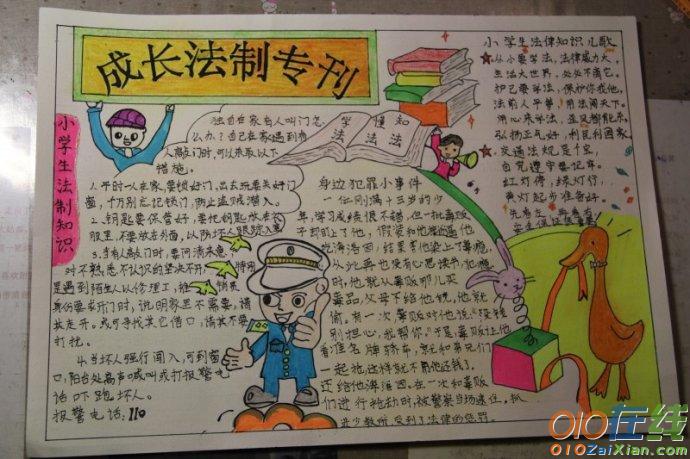 成长法制专刊
小学生法制知识
独自在家有人叫门怎
么办？自己在家遇到有
人敲门时，可以采取以下
措施。
1.平时一人在家，要锁好门，出去玩要关好门
窗，千万别忘记锁门，防止盗贼潜入。
2、钥匙要保管好，要把钥匙放在衣
服里，不要放在外面，以防坏人跟踪入室
3.当有人敲门时，要问清来意，
对不熟悉不认识的坚决不开，特别
是遇到陌生人以修理工，推销员
身份要求开门时，说明家里不需要，请
其走开。或可寻找其它借口，请其不要
打扰。
4.当坏人强行闯入，可到窗
口，阳台处高声喊叫或打报警电
话吓跑坏人。
报警电话：110
学法
懂法
知法
身边犯罪小事件
一位刚满十三岁的少
年，学习成绩很不错，但一批毒贩
子却盯上了他，
吃海洛因，结果害他染上了毒瘾，
从此再也没有心思读书，犯瘾
时，他就从毒贩那儿买
毒品，父母不给他钱，他就
偷。有一次毒贩对他说：“没钱
别担心，我帮你。”于是，毒贩让他
看准名牌轿车，就和弟兄们
一起抢，这样就不用他还钱了，
还给他海洛因。在一次和毒贩
们进行抢劫时，被警察当场逮住，抓
进少教所，受到了法律的惩罚。
小学生法律知识儿歌
从小要学法，法律威力大，
生活大世界，处处不离它。
护己要学法，保护你我他，
法前人平等，用法闯天下。
用心来学法，
弘扬正气好，利民利国家
交通法规是个宝，
自觉遵守要记牢。
红灯停，绿灯行，
黄灯起步准备好。
先看左，再看右，
010在线
010ZaiXian.com